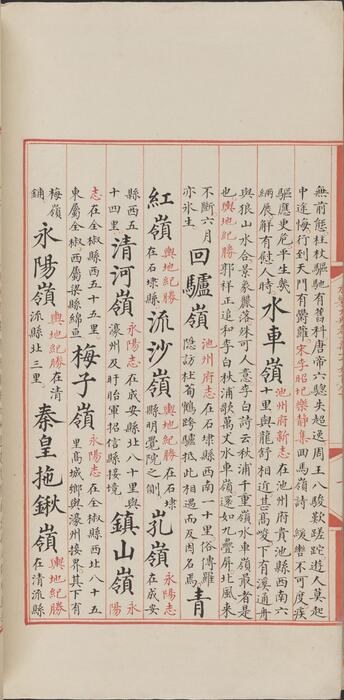 無前態柱杖驅馳有舊科唐帝六驄失超逸周王八駿歎蹉跎遊人莫起
中途悔行到天門有鬱蘿宋李昭玘樂靜集回馬嶺詩 緩轡不可度疾
驅應更危平生幾
緉屐解有慰人時
水車嶺
池州府新志在池州府貴池縣西南六
十里與龍舒相近甚高峻下有溪通舟
與狼山水合景象嚴落殊可人意李白詩云秋浦千重嶺水車嶺最奇是
也輿地紀勝郭祥正追和李白秋浦歌萬丈水車嶺還如九疊屏北風來
不斷六月
亦氷生
回驢嶺
池州府志在石埭縣西南一十里俗傳羅
隱訪杜荀鶴跨驢抵此相遇而反因名焉
青
紅嶺
輿地紀勝
在石埭縣
流沙嶺
輿地紀勝在石埭
縣明覺院之側
孔嶺
永陽志
在成安
縣西五
十四里
清河嶺
永陽志在成安縣北八十里與
濠州及盱眙軍招信縣接境
鎮山嶺
永
陽
志在全椒縣西五十五里
東屬全椒西屬梁縣綿亘
梅子嶺
永陽志在全椒縣西北八十五
里髙城鄉與濠州接界其下有
梅嶺
鋪
永陽嶺
輿地紀勝在清
流縣北三里
秦皇拖鍬嶺
輿地紀勝
在清流縣